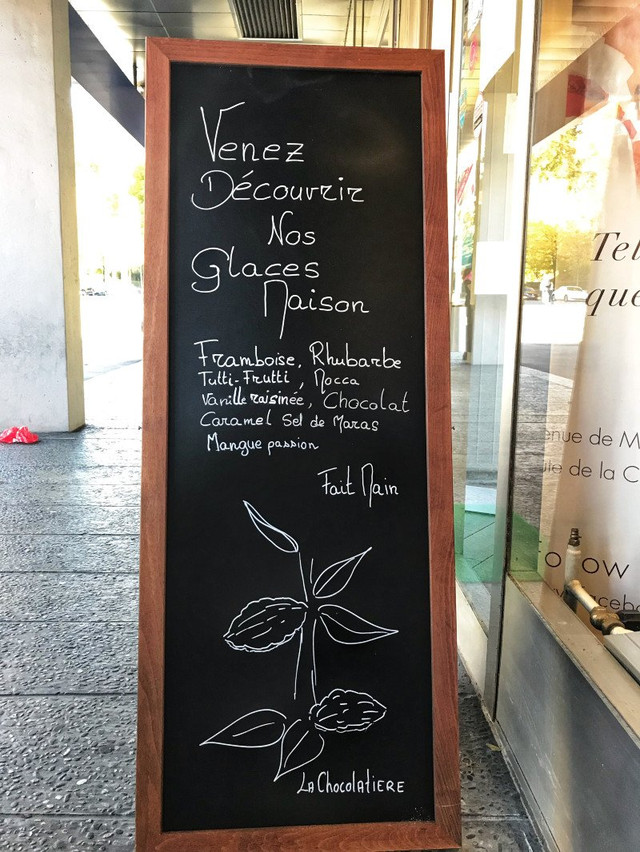 Venez
Découvrir
Nos
Glaces
Maison
Framboise, Rhubarbe
Tutti-Frutti, Mocca
Vanille raisinée, Chocolat
Caramel Sel de Maras
Mangue passion
Fait Main
La Chocolatiere
Tel
que
enue de M
ie de la C
ollow